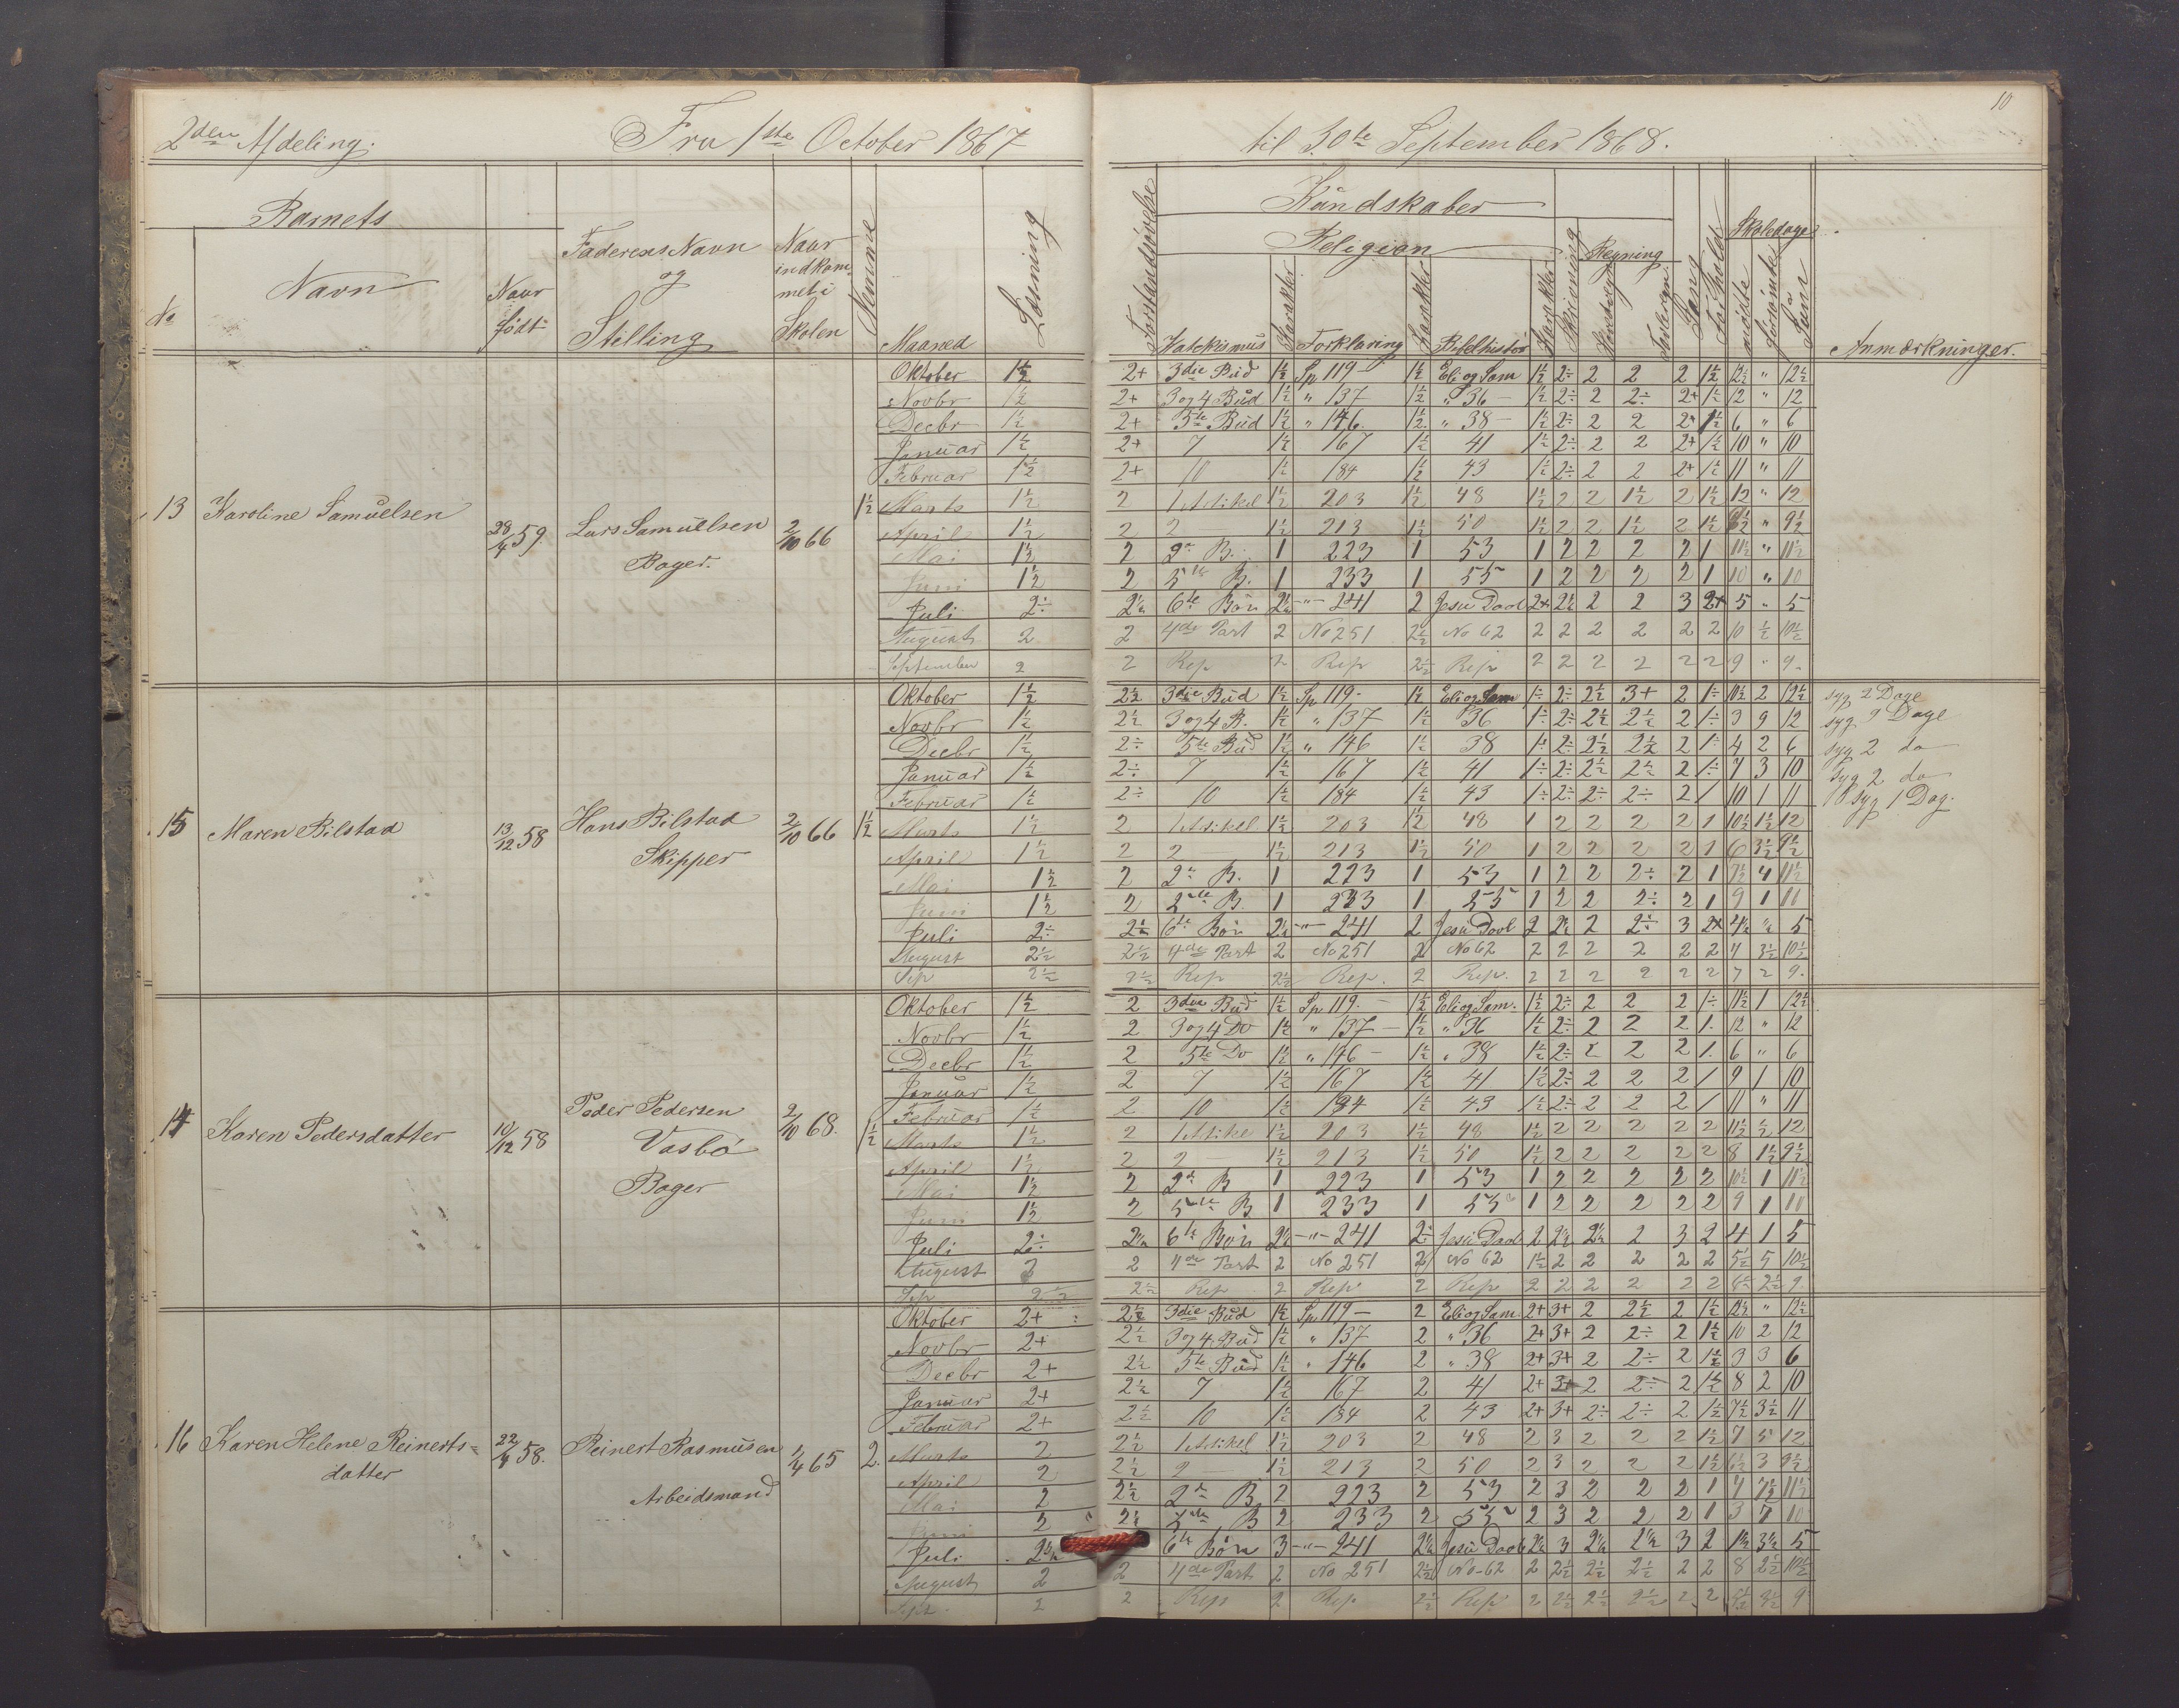 10
2den Afdeling. Fra 1ste October 1867 til 30te September 1868.
Barnets
No
Navn
Naar født
Faderens Navn og Stilling
Naar indkommet i Skolen
Nemme
Maaned
Læsning
Forstandsøvelse
Kundskaber
Religion
Katekismus
Karakter
Forklaring
Karakter
Bibelhistor
Karakter
Skrivning
Regning
Sang
Forhold
Skoledage
mødte
forsømte
Sum
Anmærkninger.
13 Karoline Samuelsen 28/4 59. Lars Samuelsen Bager. 2/10 66 1½
Oktober 1½ 2+ 3die Bud 1½ Sp 119 1½ Eli og Sam 1½ 2÷ 2 2 2 1½ 12½ " 12½
Novbr 1½ 2+ 3 og 4 Bud 1½ " 137 1½ " 36 1½ 2÷ 2 2÷ 2+ 1½ 12 " 12
Decbr 1½ 2+ 5te Bud 1½ " 146. 1½ " 38 1½ 2÷ 2 2 2+ 1½ 6 " 6
Januar 1½ 2+ 7 1½ 167 1½ 41 1½ 2÷ 2 2 2+ 1½ 10 " 10
Februar 1½ 2+ 10 1½ 184 1½ 43 1½ 2÷ 2 2 2+ 1½ 11 " 11
Marts 1½ 2 1 Artikel 1½ 203 1½ 48 1½ 2 2 1½ 2 1½ 12 " 12
April 1½ 2 2 1½ 213 1½ 50 1½ 2 2 1½ 2 1½ " 9½
Mai 1½ 2 2n B. 1 223 1 53 1 2 2 2 2 1 11½ " 11½
Juni 1½ 2 5te B. 1 233 1 55 1 2 2 2 2 1 10 " 10
Juli 2÷ 2½ 6te Bøn 2½ -"- 241 2 Jesu Daab 2+ 2½ 2 2 3 2+ 5 " 5
August 2 2 4de Part 2 No 251 2½ No 62 2 2 2 2 2 2 10 ½ 10½
September 2 2 Rep 2 Rep 2½ Rep 2 2 2 2 2 2 9 " 9
15 Maren Bilstad 13/12 58 Hans Bilstad Skipper 2/10 66 1½
Oktober 1½ 2½ 3die Bud 1½ Sp 119 1½ Eli og Sam 1÷ 2÷ 2½ 3+ 2 1÷ 10½ 2 12½ syg 2 Dage
Novbr 1½ 2½ 3 og 4 B. 1½ " 137 1½ 36 1÷ 2÷ 2½ 2½ 2 1÷ 3 9 12 syg 9 Dage
Decbr 1½ 2÷ 5te Bud 1½ " 146 1½ 38 1÷ 2÷ 2½ 2½ 2 1÷ 4 2 6 syg 2 do
Januar 1½ 2÷ 7 1½ 167 1½ 41 1÷ 2÷ 2½ 2½ 2 1÷ 7 3 10 syg 2 do
Februar 1½ 2÷ 10 1½ 184 1½ 43 1÷ 2÷ 2÷ 2÷ 2 1 10 1 11 syg 1 Dag.
Marts 1½ 2 1 Artikel 1½ 203 1½ 48 1 2 2 2 2 1 10½ 1½ 12
April 1½ 2 2 1½ 213 1½ 50 1 2 2 2 2 1 6 3½ 9½
Mai 1½ 2 2n B. 1 223 1 53 1 2 2 2÷ 2 1 7½ 4 11½
Juni 1½ 2 B. 1 233 1 55 1 2 2 2÷ 2 1 9 1 10
Juli 2÷ 2½ 6te Bøn 2½ -"- 241 2 Jesu Daab 2 2½ 2 2÷ 3 2+ 4½ ½ 5
August 2½ 2½ 4de Part 2 No 251 2 No 62 2 2 2 2 2 2 7 3½ 10½
Sep 2½ 2½ Rep 2½ Rep. 2 Rep. 2 2 2 2 2 2 7 2 9
14 Karen Pedersdatter 10/12 58 Peder Pedersen Vasbø Bager 2/10 68. 1½
Oktober 1½ 2 3die Bud 1½ Sp 119. 1½ Eli og Sam. 1½ 2÷ 2 2 2 1÷ 11½ 1 12½
Novbr 1½ 2 3 og 4 Do 1½ " 137 1½ " 36 1½ 2÷ 2 2 2 1. 12 " 12
Decbr 1½ 2 5te Do 1½ " 146 1½ " 38 1½ 2÷ 2 2 2 1. 6 " 6
Januar 1½ 2 7 1½ 167 1½ 41 1½ 2÷ 2 2 2 1 9 1 10
Februar 1½ 2 10 1½ 184 1½ 43 1½ 2÷ 2 2 2 1 11 " 11
Marts 1½ 2 1 Artikel 1½ 203 1½ 48 1½ 2 2 2 2 2 11½ ½ 12
April 1½ 2 2 1½ 213 1½ 50 1½ 2 2 2 2 2 8 1½ 9½
Mai 1½ 2 2n B 1 223 1 53 1 2 2 2 2 2 10½ 1 11½
Juni 1½ 2 5te B 1 233 1 55 1 2 2 2 2 2 9 1 10
Juli 2÷ 2½ 6te Bøn 2½ -"- 241 2÷ Jesu Daab 2 2½ 2½ 2 3 2 4 1 5
August 2 2 4de Part 2 No 251 2 No 62 1½ 2 2 2 2 2 5½ 5 10½
Sep 2½ 2½ Rep 2 Rep 2 Rep 2 2 2 2 2 2 6½ 2½ 9
16 Karen Helene Reinertsdatter 22/4 58. Reinert Rasmusen Arbeidsmand 1/4 65 2.
Oktober 2+ 2½ 3die Bud 1½ Sp 119 2 Eli og Sam. 2+ 3+ 2 2½ 2 1½ 12½ " 12½
Novbr 2+ 2½ 3 og 4 Bud 1½ " 137 2 " 36 2+ 3+ 2 2÷ 2 1½ 10 2 12
Decbr 2+ 2½ 5te Bud 1½ " 146 2 " 38 2+ 3+ 2 2÷ 2 1½ 3 3 6
Januar 2+ 2½ 7 1½ 167 2 41 2+ 3+ 2 2÷ 2 1½ 8 2 10
Februar 2+ 2½ 10 1½ 184 2 43 2+ 3+ 2÷ 2÷ 2 1½ 7½ 3½ 11
Marts 2 2½ 1 Artikel 1½ 203 2 48 2 3 2 2 2 1½ 7 5 12
April 2 2½ 2 1½ 213 2 50 2 3 2 2 2 1½ 6½ 3 9½
Mai 2 2½ 2n B 2 223 2 53 2 3 2 2 2 1 4 7½ 11½
Juni 2 2½ 5te B 2 233 2 55 2 3 2 2 2 1 3 7 10
Juli 2½ 6te Bøn 3 -"- 241 2½ Jesu Daab 2½ 3 2½ 2½ 3 2 1½ 3½ 5
August 2 2 4de Part 2 No 251 2½ No 62 2 2½ 2½ 2½ 2 2 8 2½ 10½
Sept. 2 2 Rep 2 Rep 2½ Rep 2 2½ 2½ 2½ 2 2 9